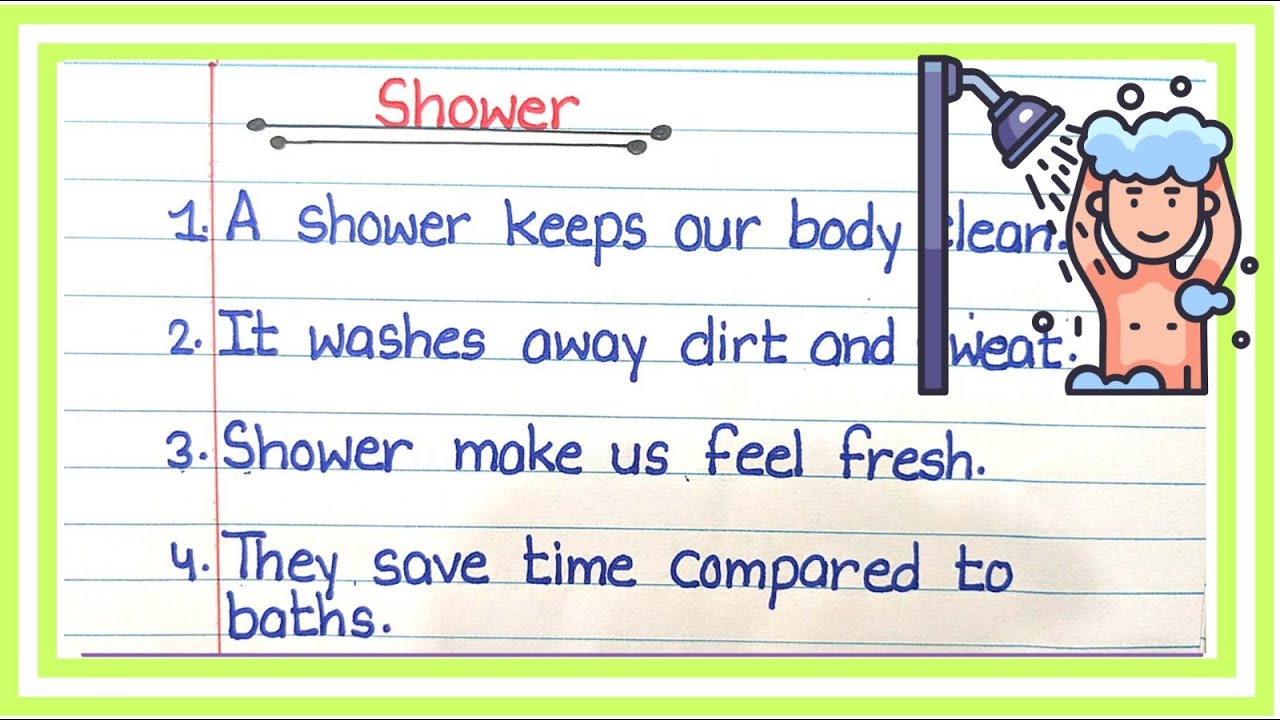 Shower
1. A shower keeps our body clean.
2. It washes away dirt and sweat.
3. Shower make us feel fresh.
4. They save time compared to
baths.